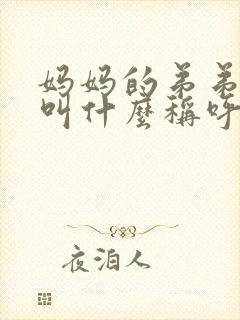 妈妈的弟弟
叫什麼稱呼
夜泊人